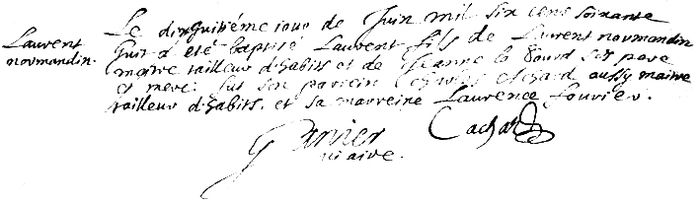 Laurent
normandin.
Le dixhuitiême jour de Juin mil six cens soixante
huit a été baptisé Laurent fils de Laurent normandin
maitre tailleur d'habits et de Jeanne le Sourd ses pere
et mere. fut son parein Charles aussy maitre
tailleur d'habits. et sa marreine Laurence fournier.
Cachard
G
vicaire.